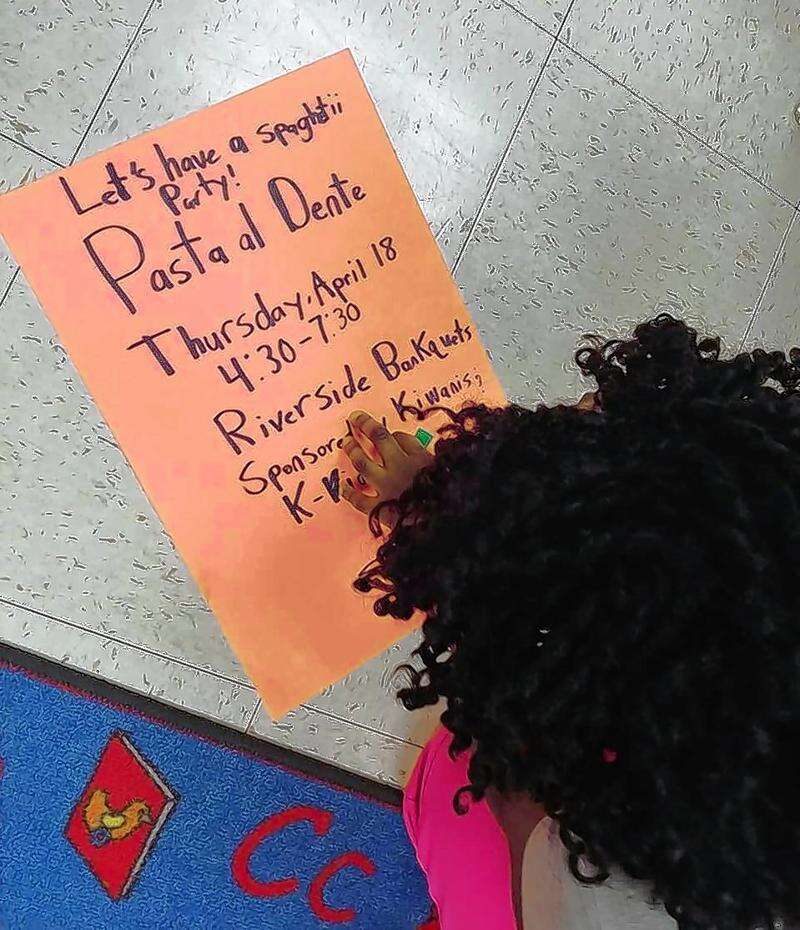 Let's have a spaghetii
Party!
Pasta al Dente
Thursday, April 18
4:30-7:30
Riverside Bankquets
Kiwanis;
K-
Cc